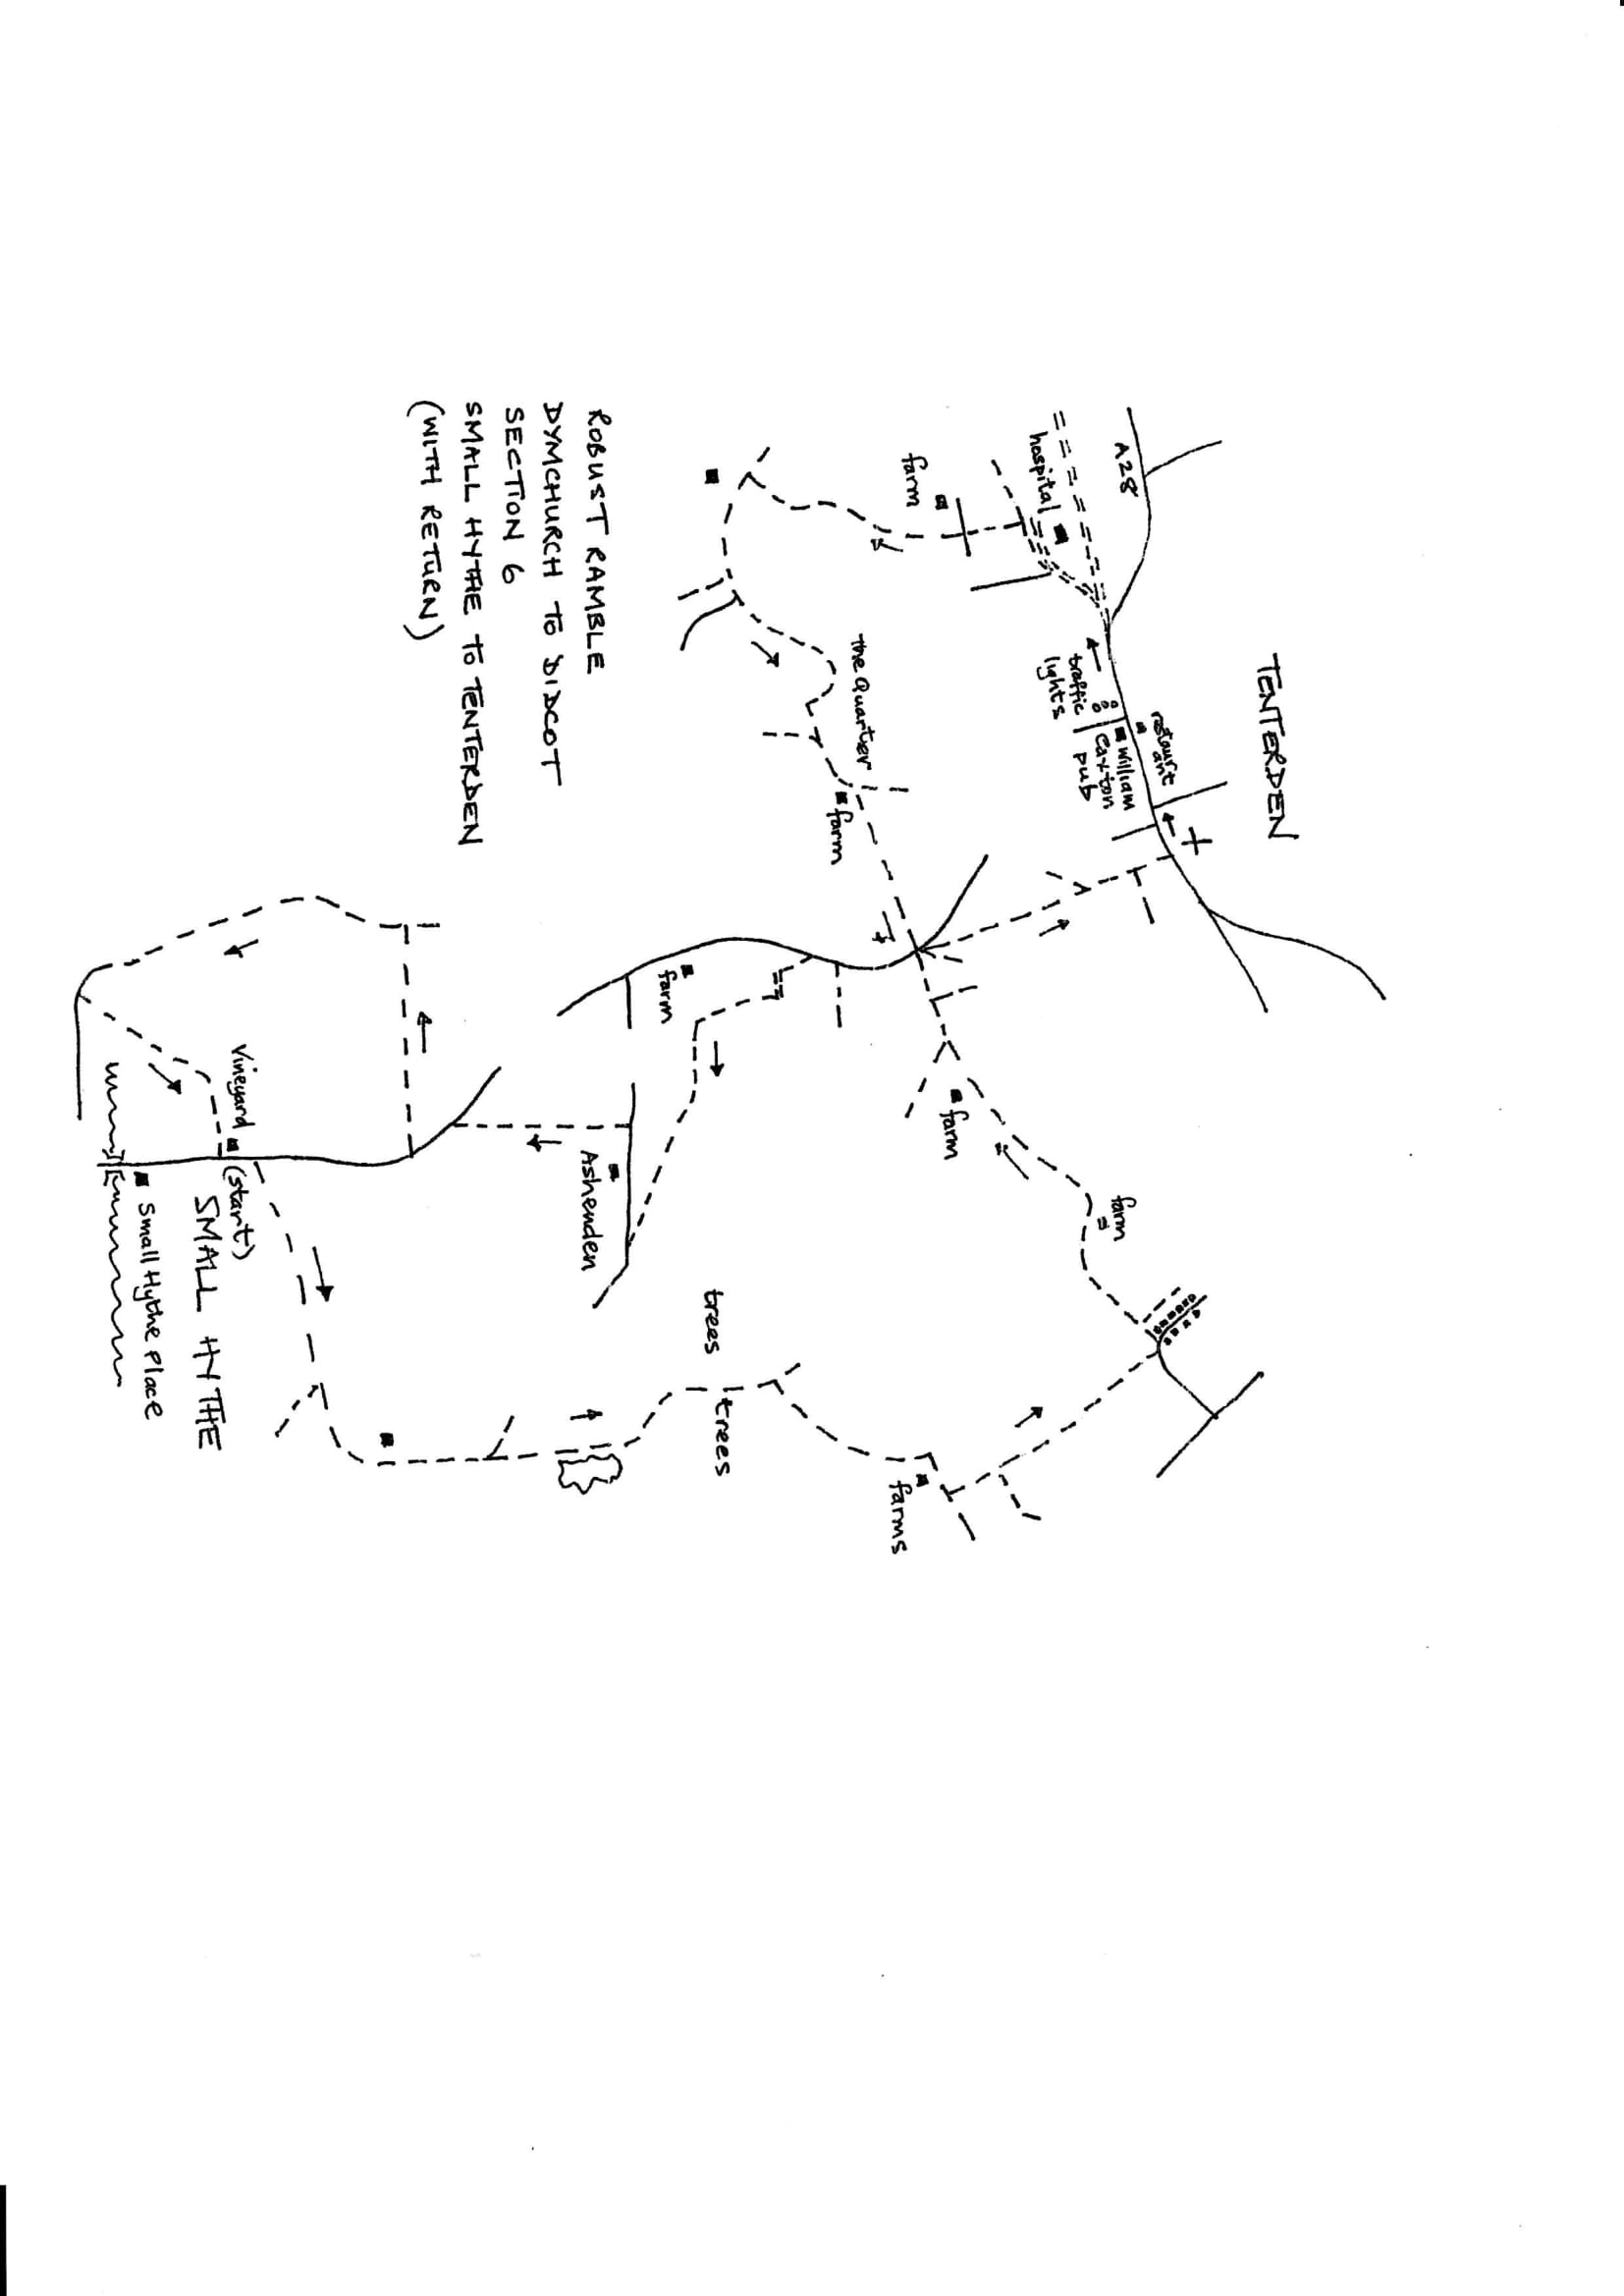 TENTERDEN
restaur
ant
A28
William
Caxton
pub
traffic
lights
hospital
farm
farm
farm
farms
The Quarter
farm
trees
trees
farm
Ashenden
ROBUST RAMBLE
DYMCHURCH TO DIDCOT
SECTION 6
SMALL HYTHE TO TENTERDEN
(WITH RETURN)
Vineyard
(start)
SMALL HYTHE
Small Hythe Place